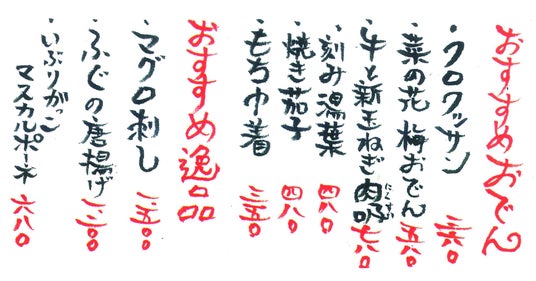 おすすめおでん
・クロワッサン 三六〇
・菜の花 梅おでん 五八〇
・牛と新玉ねぎ肉吸 にくすい 七八〇
・刻み湯葉 四八〇
・焼き茄子 四八〇
・もち巾着 三五〇
おすすめ逸品
・マグロ刺し 一、五〇〇
・ふぐの唐揚げ 一、二〇〇
・いぶりがっこ
マスカルポーネ 六八〇